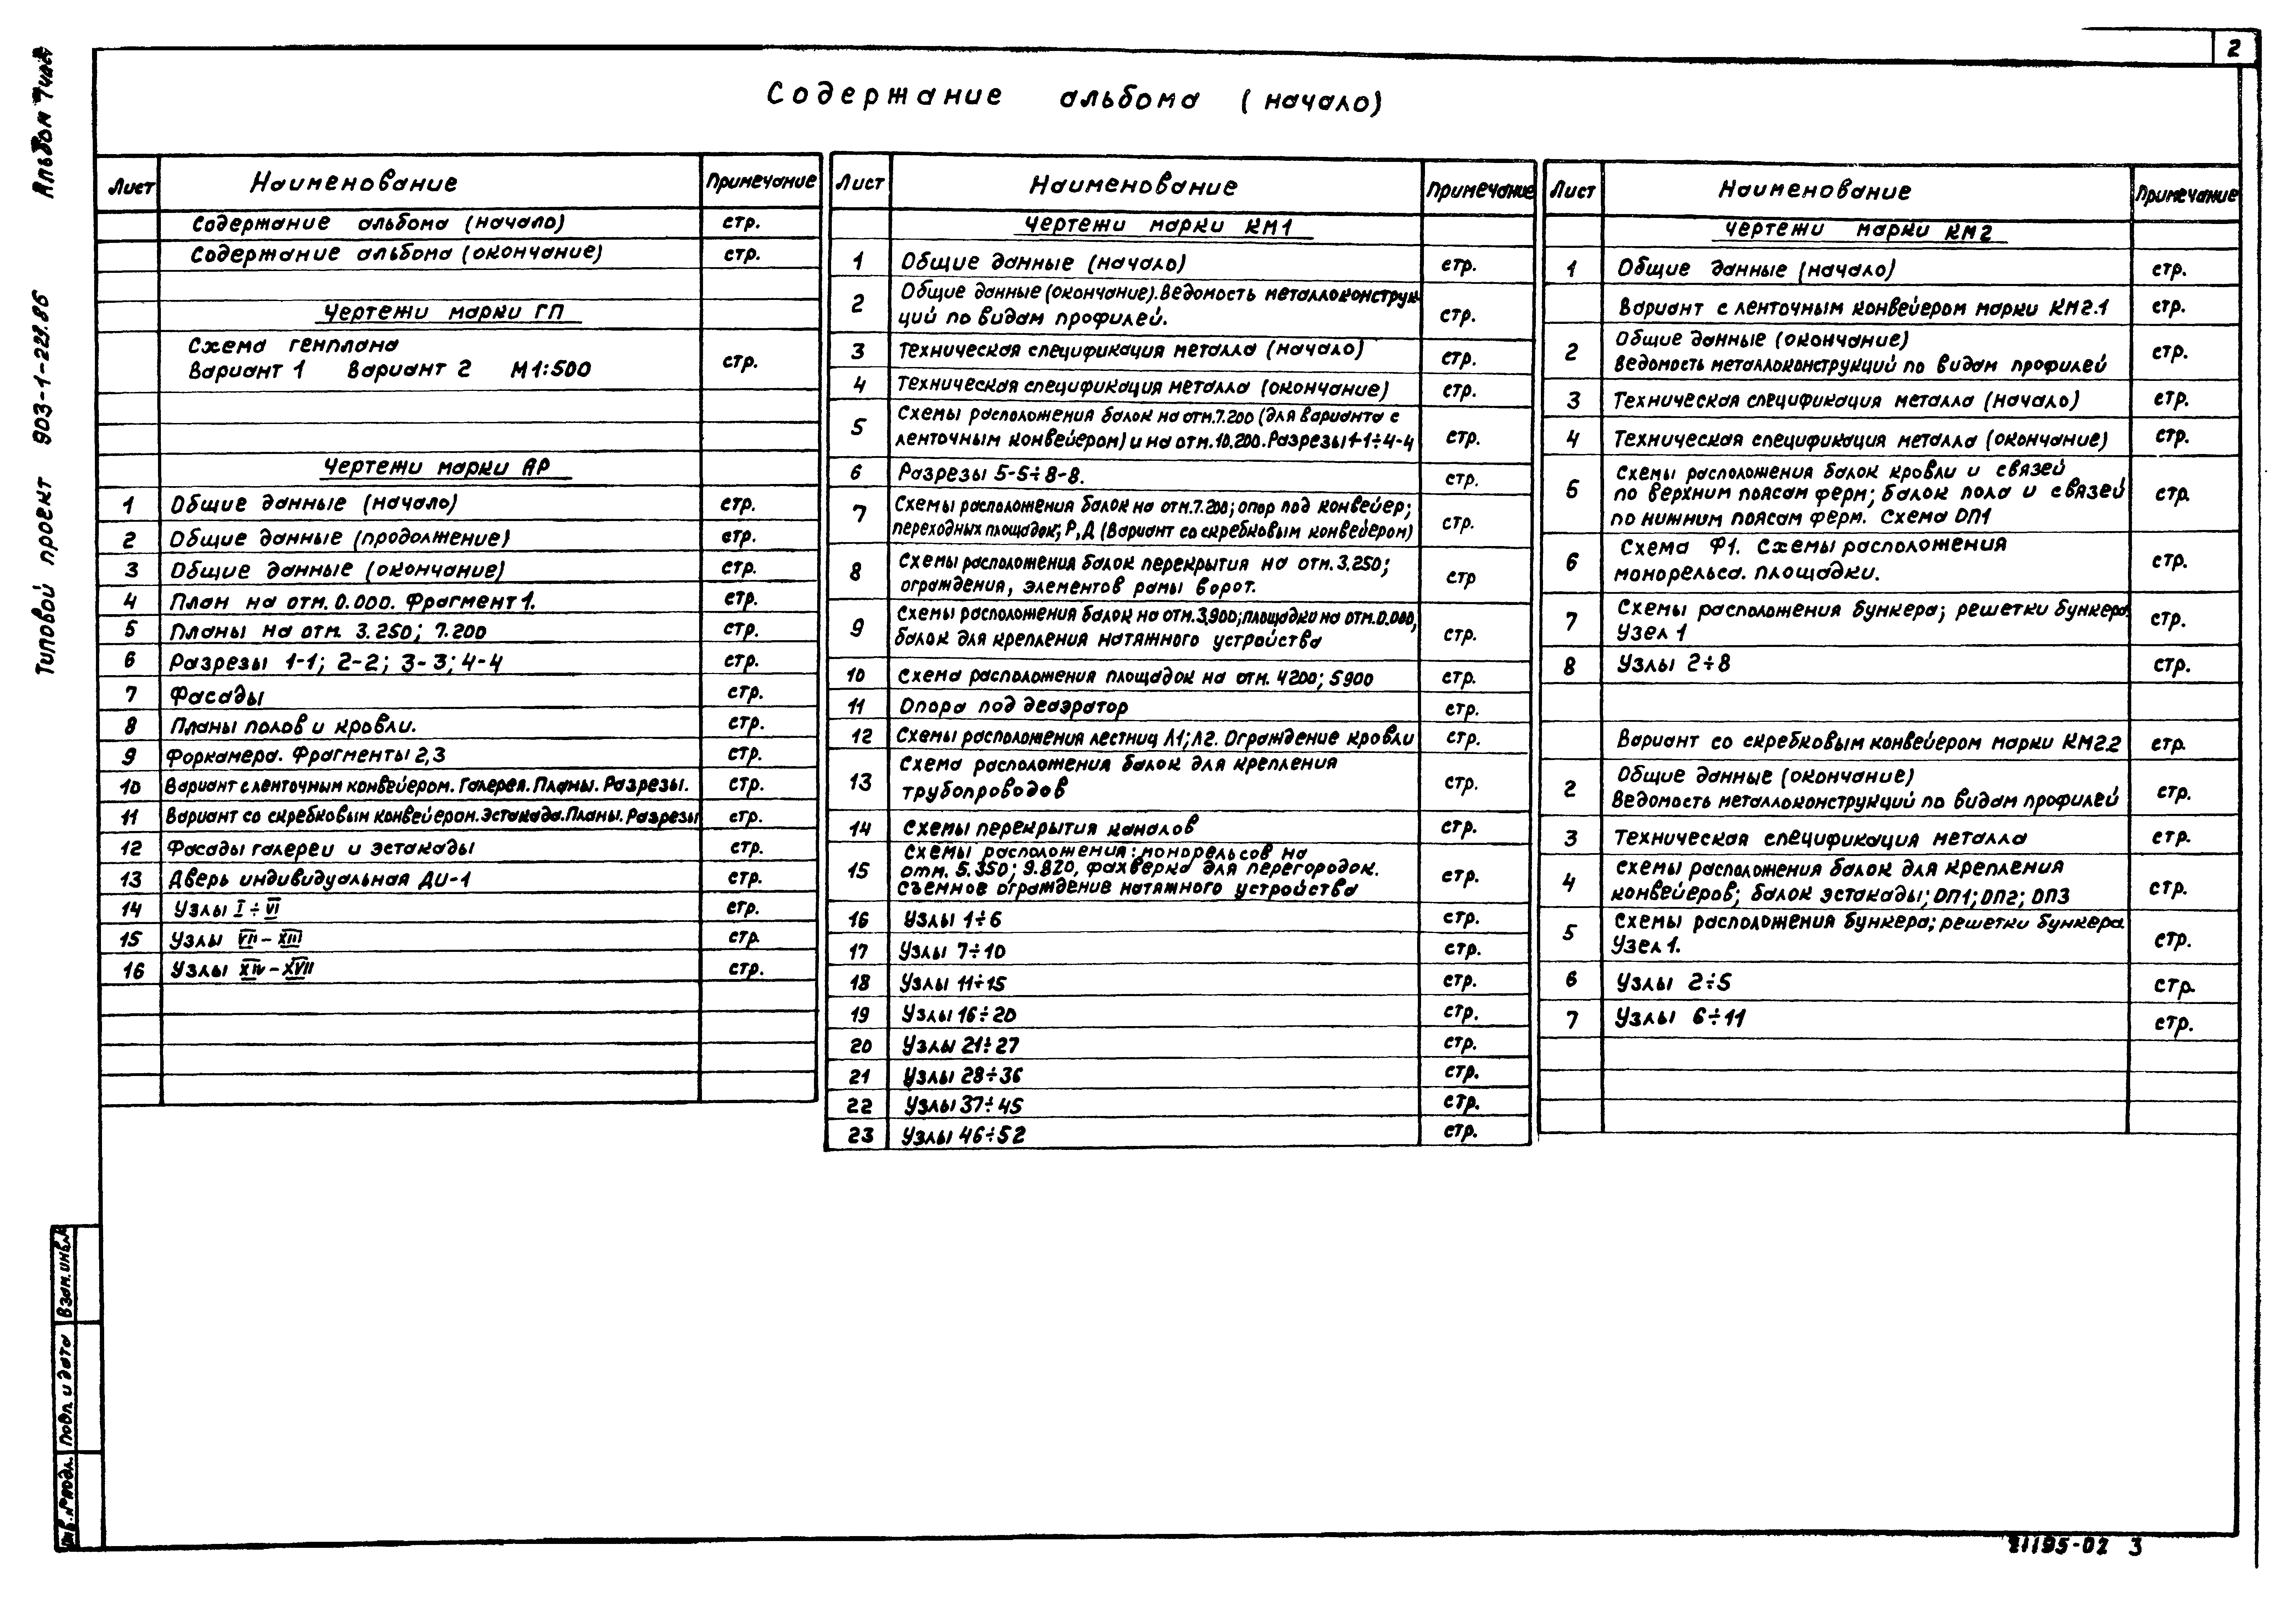 2
Содержание альбома (начало)
Типовой проект 903-1-228.86 Альбом 7
Лист Наименование Примечание
Содержание альбома (начало) стр.
Содержание альбома (окончание) стр.
Чертежи марки ГП
Схема генплана
Вариант 1 Вариант 2 М1:500 стр.
Чертежи марки АР
1 Общие данные (начало) стр.
2 Общие данные (продолжение) стр.
3 Общие данные (окончание) стр.
4 План на отм. 0.000. Фрагмент 1. стр.
5 Планы на отм. 3.250; 7.200 стр.
6 Разрезы 1-1; 2-2; 3-3; 4-4 стр.
7 Фасады стр.
8 Планы полов и кровли. стр.
9 Форкамера. Фрагменты 2,3 стр.
10 Вариант с ленточным конвейером. Галерея. Планы. Разрезы. стр.
11 Вариант со скребковым конвейером. Эстакада. Планы. Разрезы стр.
12 Фасады галереи и эстакады стр.
13 Дверь индивидуальная ДИ-1 стр.
14 Узлы I÷VI стр.
15 Узлы VII-XIII стр.
16 Узлы XIV-XVII стр.
Лист Наименование Примечание
Чертежи марки КМ1
1 Общие данные (начало) стр.
2 Общие данные (окончание). Ведомость металлоконструк-
ций по видам профилей. стр.
3 Техническая спецификация металла (начало) стр.
4 Техническая спецификация металла (окончание) стр.
5 Схемы расположения балок на отм. 7.200 (для варианта с
ленточным конвейером) и на отм. 10.200. Разрезы 1-1÷4-4 стр.
6 Разрезы 5-5÷8-8. стр.
7 Схемы расположения балок на отм. 7.200; опор под конвейер;
переходных площадок; Р,Д (Вариант со скребковым конвейером) стр.
8 Схемы расположения балок перекрытия на отм. 3.250;
ограждения, элементов рамы ворот. стр
9 Схемы расположения балок на отм. 3.900; площадки на отм. 0.000,
балок для крепления натяжного устройства стр.
10 Схема расположения площадок на отм. 4200; 5900 стр.
11 Опора под деаэратор стр.
12 Схемы расположения лестниц Л1; Л2. Ограждение кровли стр.
13 Схема расположения балок для крепления
трубопроводов стр.
14 Схемы перекрытия каналов стр.
15 Схемы расположения: монорельсов на
отм. 5.350; 9.820, фахверка для перегородок.
Съемное ограждение натяжного устройства стр.
16 Узлы 1÷6 стр.
17 Узлы 7÷10 стр.
18 Узлы 11÷15 стр.
19 Узлы 16÷20 стр.
20 Узлы 21÷27 стр.
21 Узлы 28÷36 стр.
22 Узлы 37÷45 стр.
23 Узлы 46÷52 стр.
Лист Наименование Примечание
Чертежи марки КМ2
1 Общие данные (начало) стр.
Вариант с ленточным конвейером марки КМ2.1 стр.
2 Общие данные (окончание)
Ведомость металлоконструкций по видам профилей стр.
3 Техническая спецификация металла (начало) стр.
4 Техническая спецификация металла (окончание) стр.
5 Схемы расположения балок кровли и связей
по верхним поясам ферм; балок пола и связей
по нижним поясам ферм. Схема ОП1 стр.
6 Схема Ф1. Схемы расположения
монорельса. площадки. стр.
7 Схемы расположения бункера; решетки бункера.
Узел 1 стр.
8 Узлы 2÷8 стр.
Вариант со скребковым конвейером марки КМ2.2 стр.
2 Общие данные (окончание)
Ведомость металлоконструкций по видам профилей стр.
3 Техническая спецификация металла стр.
4 Схемы расположения балок для крепления
конвейеров; балок эстакады; ОП1; ОП2; ОП3 стр.
5 Схемы расположения бункера; решетки бункера
Узел 1. стр.
6 Узлы 2÷5 стр.
7 Узлы 6÷11 стр.
Инв.№ подл. Подп. и дата Взам. инв.№
21195-02 3